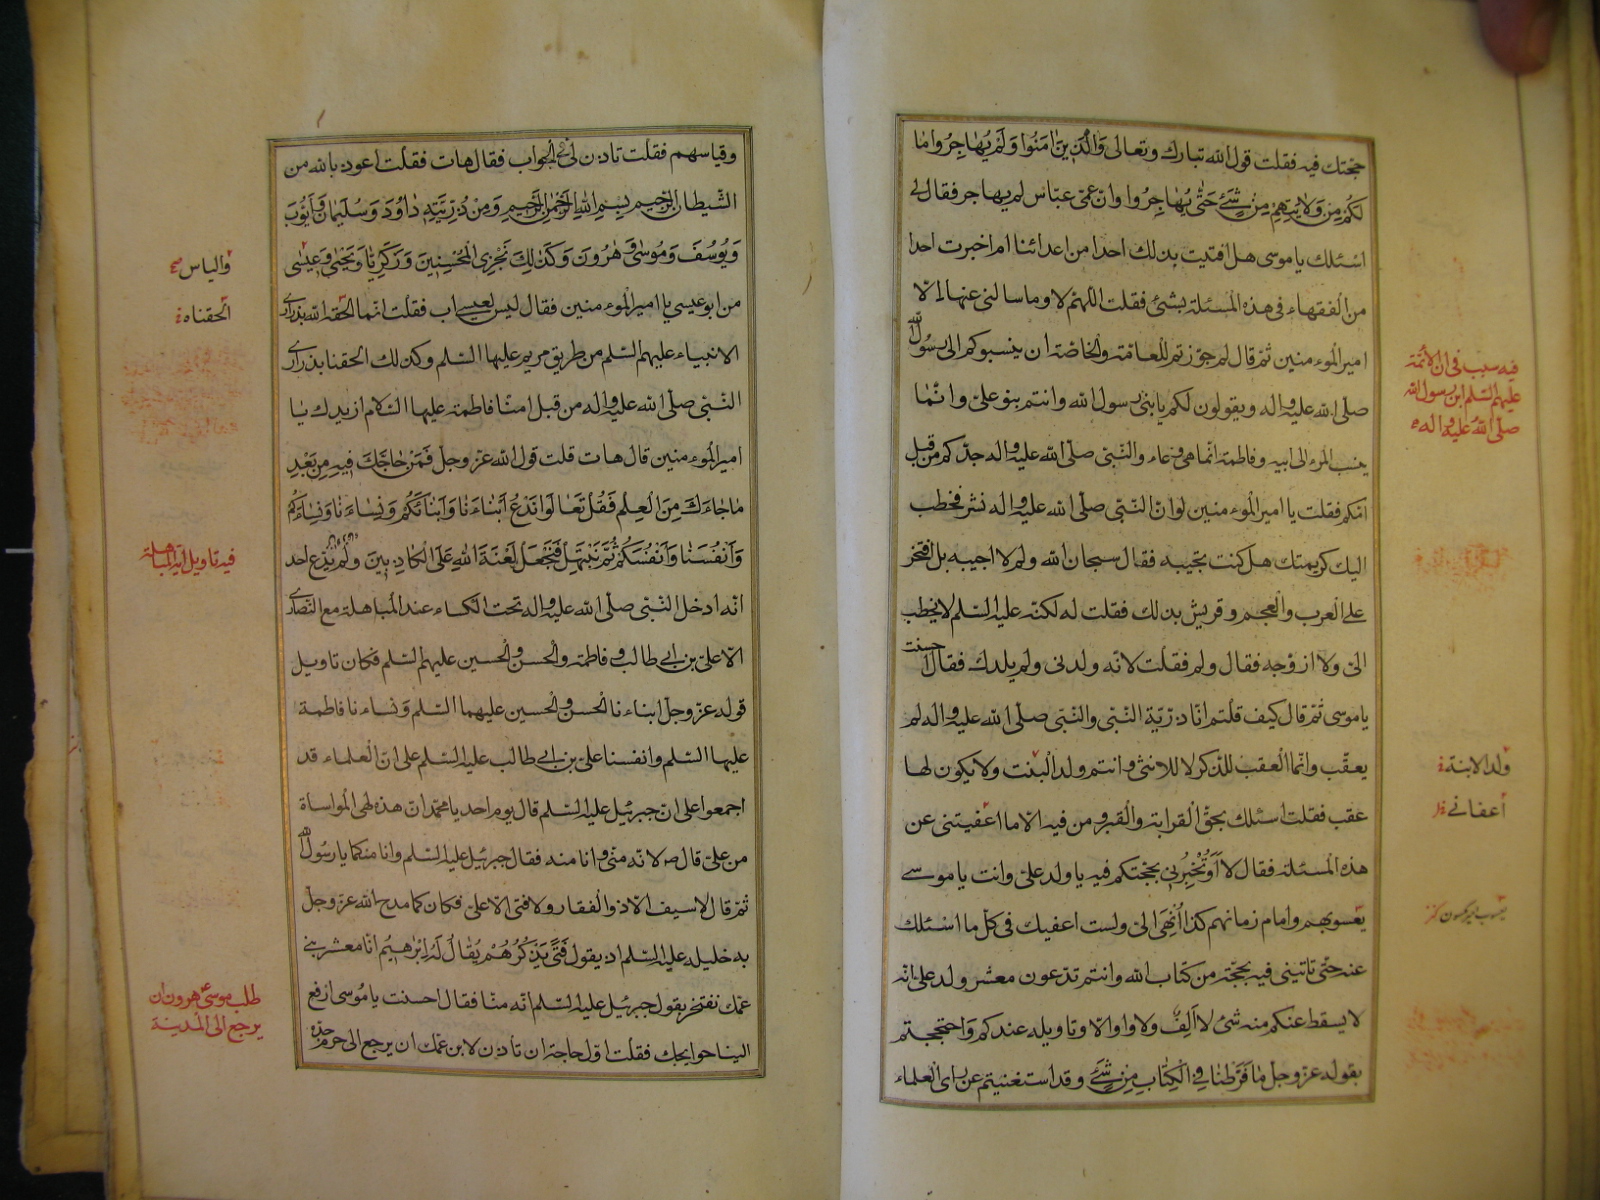 حجتك فيه فقلت قول الله تبارك وتعالى وَالَّذِينَ اٰمَنُوا وَلَمْ يُهٰاجِرُوا مٰا
لَكُمْ مِنْ وَلاٰيَتِهِمْ مِنْ شَيْءٍ حَتّٰى يُهٰاجِرُوا وان عمى عباس لم يهاجر فقال لى
اسئلك يا موسى هل افتيت بذلك احدا من اعدائنا ام اخبرت احدا
من الفقهاء فى هذه المسئلة بشئ فقلت اللهم لا وما سالنى عنها الا
امير الموءمنين ثم قال لم جوزتم للعامة والخاصة ان ينسبوكم الى رسول الله
صلى الله عليه واله ويقولون لكم يا بنى رسول الله وانتم بنو على وانما
ينسب المرء الى ابيه وفاطمة انما هى وعاء والنبى صلى الله عليه واله جدكم من قبل
امكم فقلت يا امير الموءمنين لو ان النبى صلى الله عليه واله نشر فخطب
اليك كريمتك هل كنت تجيبه فقال سبحان الله ولم لا اجيبه بل افتخر
على العرب والعجم وقريش بذلك فقلت له لكنه عليه السلم لا يخطب
الى ولا ازوجه فقال ولم فقلت لانه ولدنى ولم يلدك فقال احسنت
يا موسى ثم قال كيف قلتم انا ذرية النبى والنبى صلى الله عليه واله لم
يعقب وانما العقب للذكر لا للانثى وانتم ولد البنت ولا يكون لها
عقب فقلت اسئلك بحق القرابة والقبر ومن فيه الا ما اعفيتنى عن
هذه المسئلة فقال لا اَوَتُخْبِرُنى بحجتكم فيه يا ولد على وانت يا موسى
يعسوبهم وامام زمانهم كذا اُنْهِىَ الى ولست اعفيك فى كل ما اسئلك
عنه حتى تاتينى فيه بحجة من كتاب الله وانتم تدعون معشر ولد على انه
لا يسقط عنكم منه شئ لا اَلِفٌ ولا واو الا وتاويله عندكم واحتججتم
بقوله عز وجل مٰا فَرَّطْنٰا فِي الْكِتٰابِ مِنْ شَيْءٍ وقد استغنيتم عن راى العلماء
فيه سبب فى ان الائمة
عليهم السلم ابن رسول الله
صلى الله عليه واله
ولد الابنة
اعفانى
وقياسهم فقلت تاذن لى فى الجواب فقال هات فقلت اعوذ بالله من
الشيطان الرجيم بسم الله الرحمن الرحيم وَمِنْ ذُرِّيَّتِهِ دٰاوُدَ وَسُلَيْمٰانَ وَاَيُّوبَ
وَيُوسُفَ وَمُوسٰى وَهٰرُونَ وَكَذٰلِكَ نَجْزِى الْمُحْسِنِينَ وَزَكَرِيّٰا وَيَحْيٰى وَعِيسٰى
من ابو عيسى يا امير الموءمنين فقال ليس لعيسى اب فقلت انما الحقه الله بذرارى
الانبياء عليهم السلم من طريق مريم عليها السلم وكذلك الحقنا بذرارى
النبى صلى الله عليه واله من قبل امنا فاطمة عليها السلام ازيدك يا
امير الموءمنين قال هات قلت قول الله عز وجل فَمَنْ حٰاجَّكَ فِيهِ مِنْ بَعْدِ
مٰا جٰاءَكَ مِنَ الْعِلْمِ فَقُلْ تَعٰالَوْا نَدْعُ اَبْنٰاءَنٰا وَاَبْنٰاءَكُمْ وَنِسٰاءَنٰا وَنِسٰاءَكُمْ
وَاَنْفُسَنٰا وَاَنْفُسَكُمْ ثُمَّ نَبْتَهِلْ فَنَجْعَلْ لَعْنَةَ اللهِ عَلَى الْكٰاذِبِينَ ولم يدّع احد
انه ادخل النبى صلى الله عليه واله تحت الكساء عند المباهلة مع النصارى
الا على بن ابى طالب وفاطمة والحسن والحسين عليهم السلم فكان تاويل
قوله عز وجل ابناءنا الحسن والحسين عليهما السلم ونساءنا فاطمة
عليها السلم وانفسنا على بن ابى طالب عليه السلم على ان العلماء قد
اجمعوا على ان جبرئيل عليه السلم قال يوم احد يا محمد ان هذه لهى المواساة
من على قال ص لانه منى وانا منه فقال جبرئيل عليه السلم وانا منكما يا رسول الله
ثم قال لا سيف الا ذو الفقار ولا فتى الا على فكان كما مدح الله عز وجل
به خليله عليه السلم اذ يقول فَتًى يَذْكُرُهُمْ يُقٰالُ لَهُ اِبْرٰهِيمُ انا معشر بنى
عمك نفتخر بقول جبرئيل عليه السلم انه منا فقال احسنت يا موسى ارفع
الينا حوايجك فقلت اول حاجة ان تاذن لابن عمك ان يرجع الى حرم جده
والياس صح
الحقناه
فيه تاويل اية المباهلة
طلب موسى ع هرون ان
يرجع الى المدينة